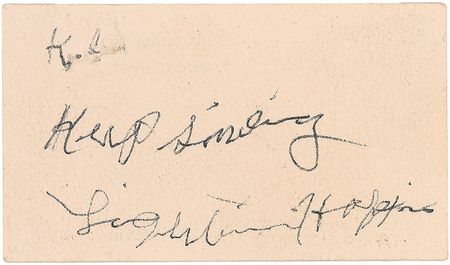 K. S
Keep smiling
Lightnin Hopkins